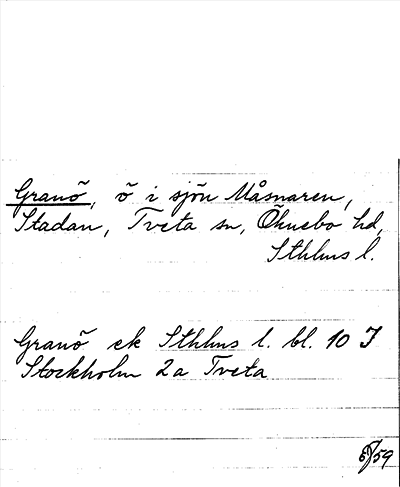 Granö, ö i sjön Måsnaren,
Stadan, Tveta sn, Öknebo hd,
Sthlms l.
Granö ek Sthlms l. bl. 10 J
Stockholm 2a Tveta
/59